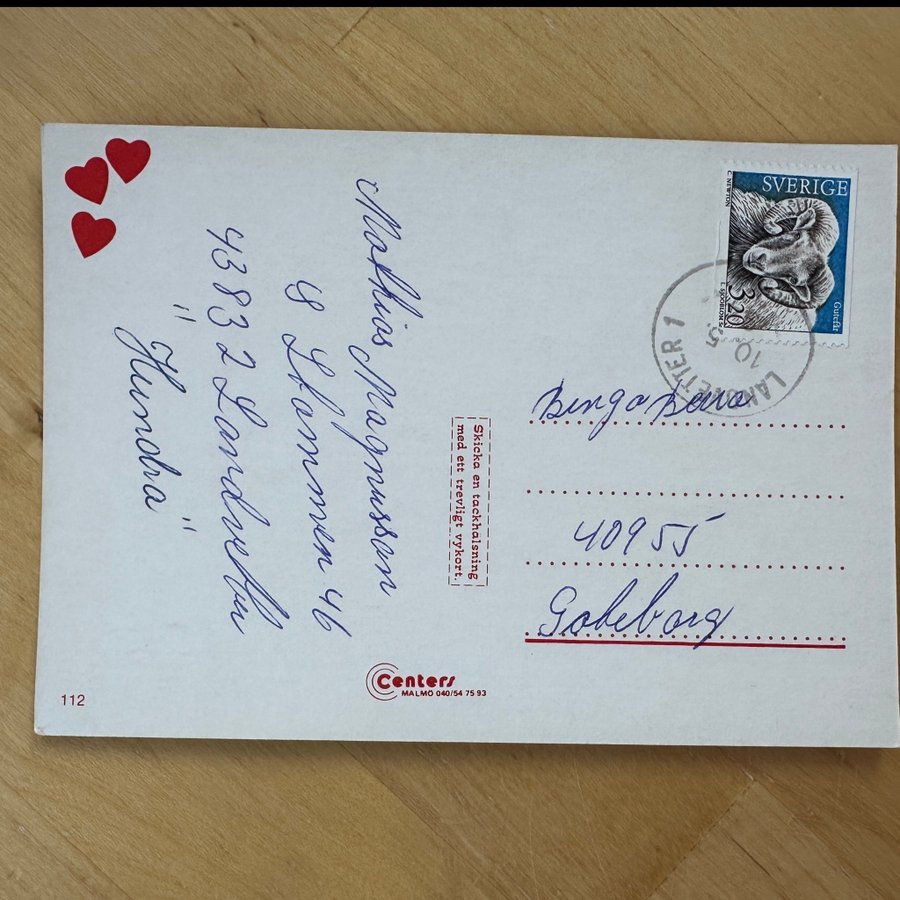 Mathias Magnusson
S Stommen 46
43832 Landvetter
"Hundra"
Skicka en tackhälsning
med ett trevligt vykort.
Centers
MALMÖ 040/54 75 93
112
SVERIGE
C. NEWTON
3.20
Gutefår
LANDVETTER 1
10 5
Bingo Bara
40955
Göteborg